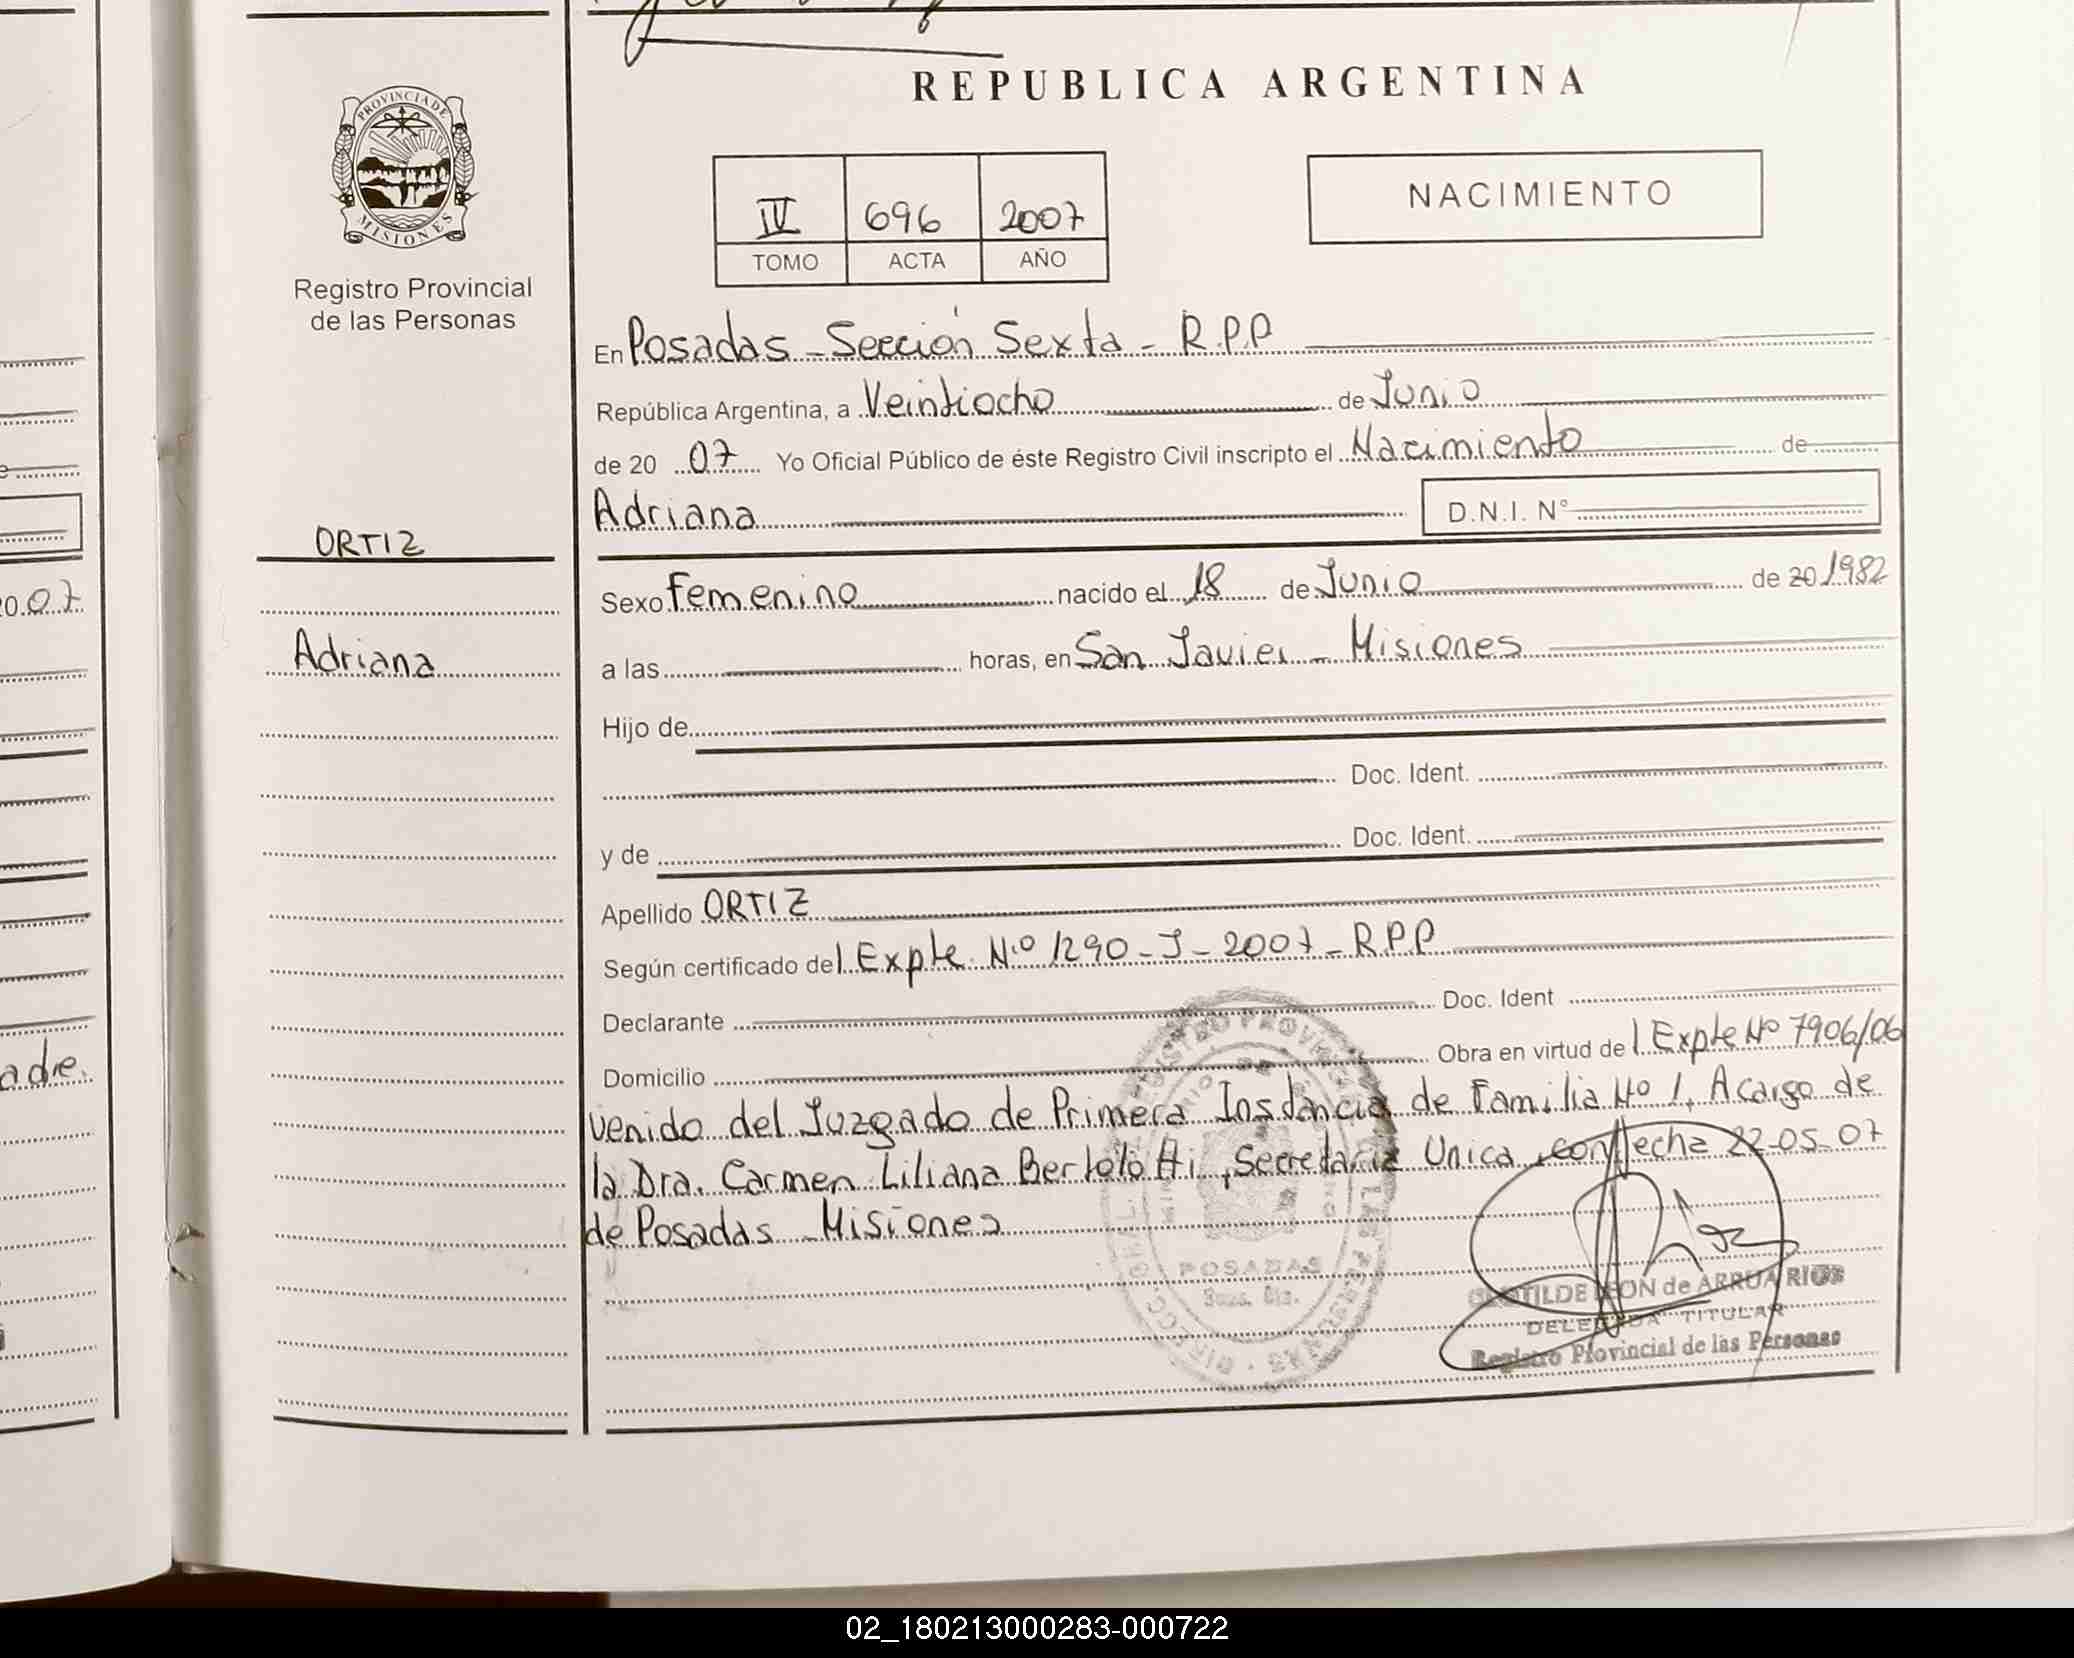 REPUBLICA ARGENTINA
PROVINCIA DE
MISIONES
Registro Provincial
de las Personas
IV 696 2007
TOMO ACTA AÑO
NACIMIENTO
En Posadas - Sección Sexta - R.P.P
República Argentina, a Veintiocho de Junio
de 20 07 Yo Oficial Público de éste Registro Civil inscripto el Nacimiento de
Adriana D.N.I. Nº
ORTIZ
Adriana
Sexo Femenino nacido el 18 de Junio de 20 1982
a las horas, en San Javier - Misiones
Hijo de
Doc. Ident.
y de Doc. Ident.
Apellido ORTIZ
Según certificado del Expte. N.º 1290 - J - 2007 - R.P.P
Declarante Doc. Ident
Domicilio Obra en virtud del Expte Nº 7906/06
venido del Juzgado de Primera Instancia de Familia Nº 1, A cargo de
la Dra. Carmen Liliana Bertolotti, Secretaria Unica, con fecha 22-05-07
de Posadas - Misiones
POSADAS
LEON de ARRUA RIOS
TITULAR
Registro Provincial de las Personas
20.07
adre.
02_180213000283-000722